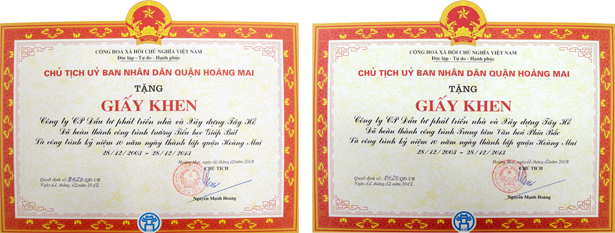 CỘNG HOÀ XÃ HỘI CHỦ NGHĨA VIỆT NAM
Độc lập - Tự do - Hạnh phúc
CHỦ TỊCH UỶ BAN NHÂN DÂN QUẬN HOÀNG MAI
TẶNG
GIẤY KHEN
Công ty CP Đầu tư phát triển nhà và Xây dựng Tây Hồ
Đã hoàn thành công trình trường Tiểu học Giáp Bát
Là công trình kỷ niệm 10 năm ngày thành lập quận Hoàng Mai
28/12/2003 - 28/12/2013
Hoàng Mai, ngày
CHỦ TỊCH
Quyết định số
QĐ-UB
Nguyễn Mạnh Hoàng
CỘNG HOÀ XÃ HỘI CHỦ NGHĨA VIỆT NAM
Độc lập - Tự do - Hạnh phúc
CHỦ TỊCH UỶ BAN NHÂN DÂN QUẬN HOÀNG MAI
TẶNG
GIẤY KHEN
Công ty CP Đầu tư phát triển nhà và Xây dựng Tây Hồ
Đã hoàn thành công trình Trung tâm Văn hoá Phía Bắc
Là công trình kỷ niệm 10 năm ngày thành lập quận Hoàng Mai
28/12/2003 - 28/12/2013
Hoàng Mai, ngày
CHỦ TỊCH
Quyết định số
QĐ-UB
Nguyễn Mạnh Hoàng